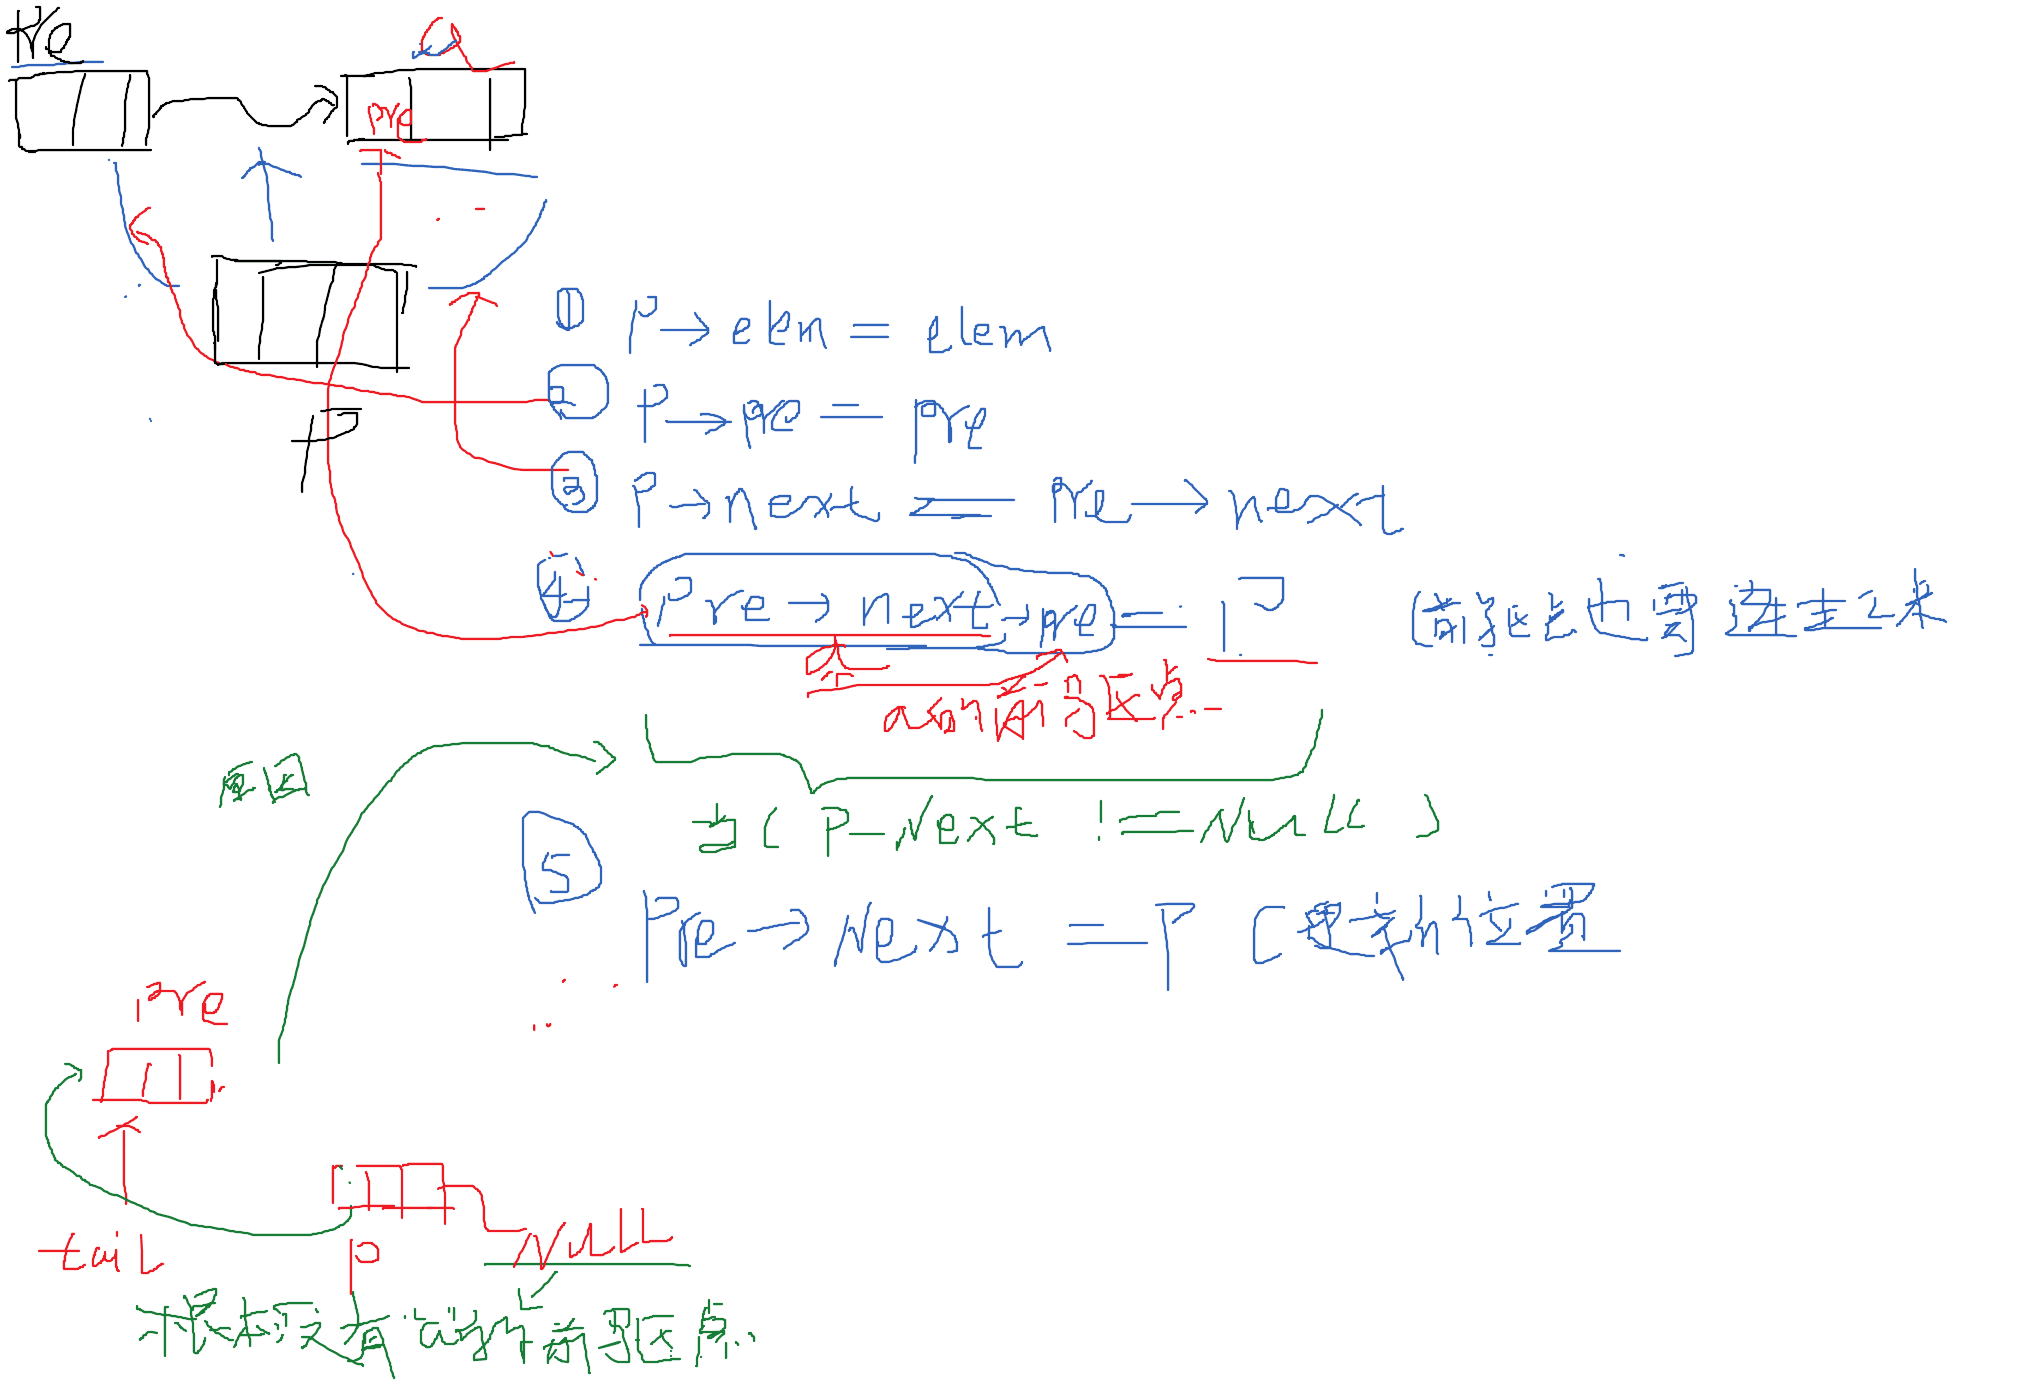 pre
a
pre
① P→elem = elem
P
② P→pre = pre
③ P→next = pre→next
④ Pre→next→pre = P (前驱点也要连进来
a
a的前驱点
原因
当( P→Next != NULL )
⑤ Pre→Next = P (更新位置
pre
tail
P
NULL
根本没有"a"的前驱点